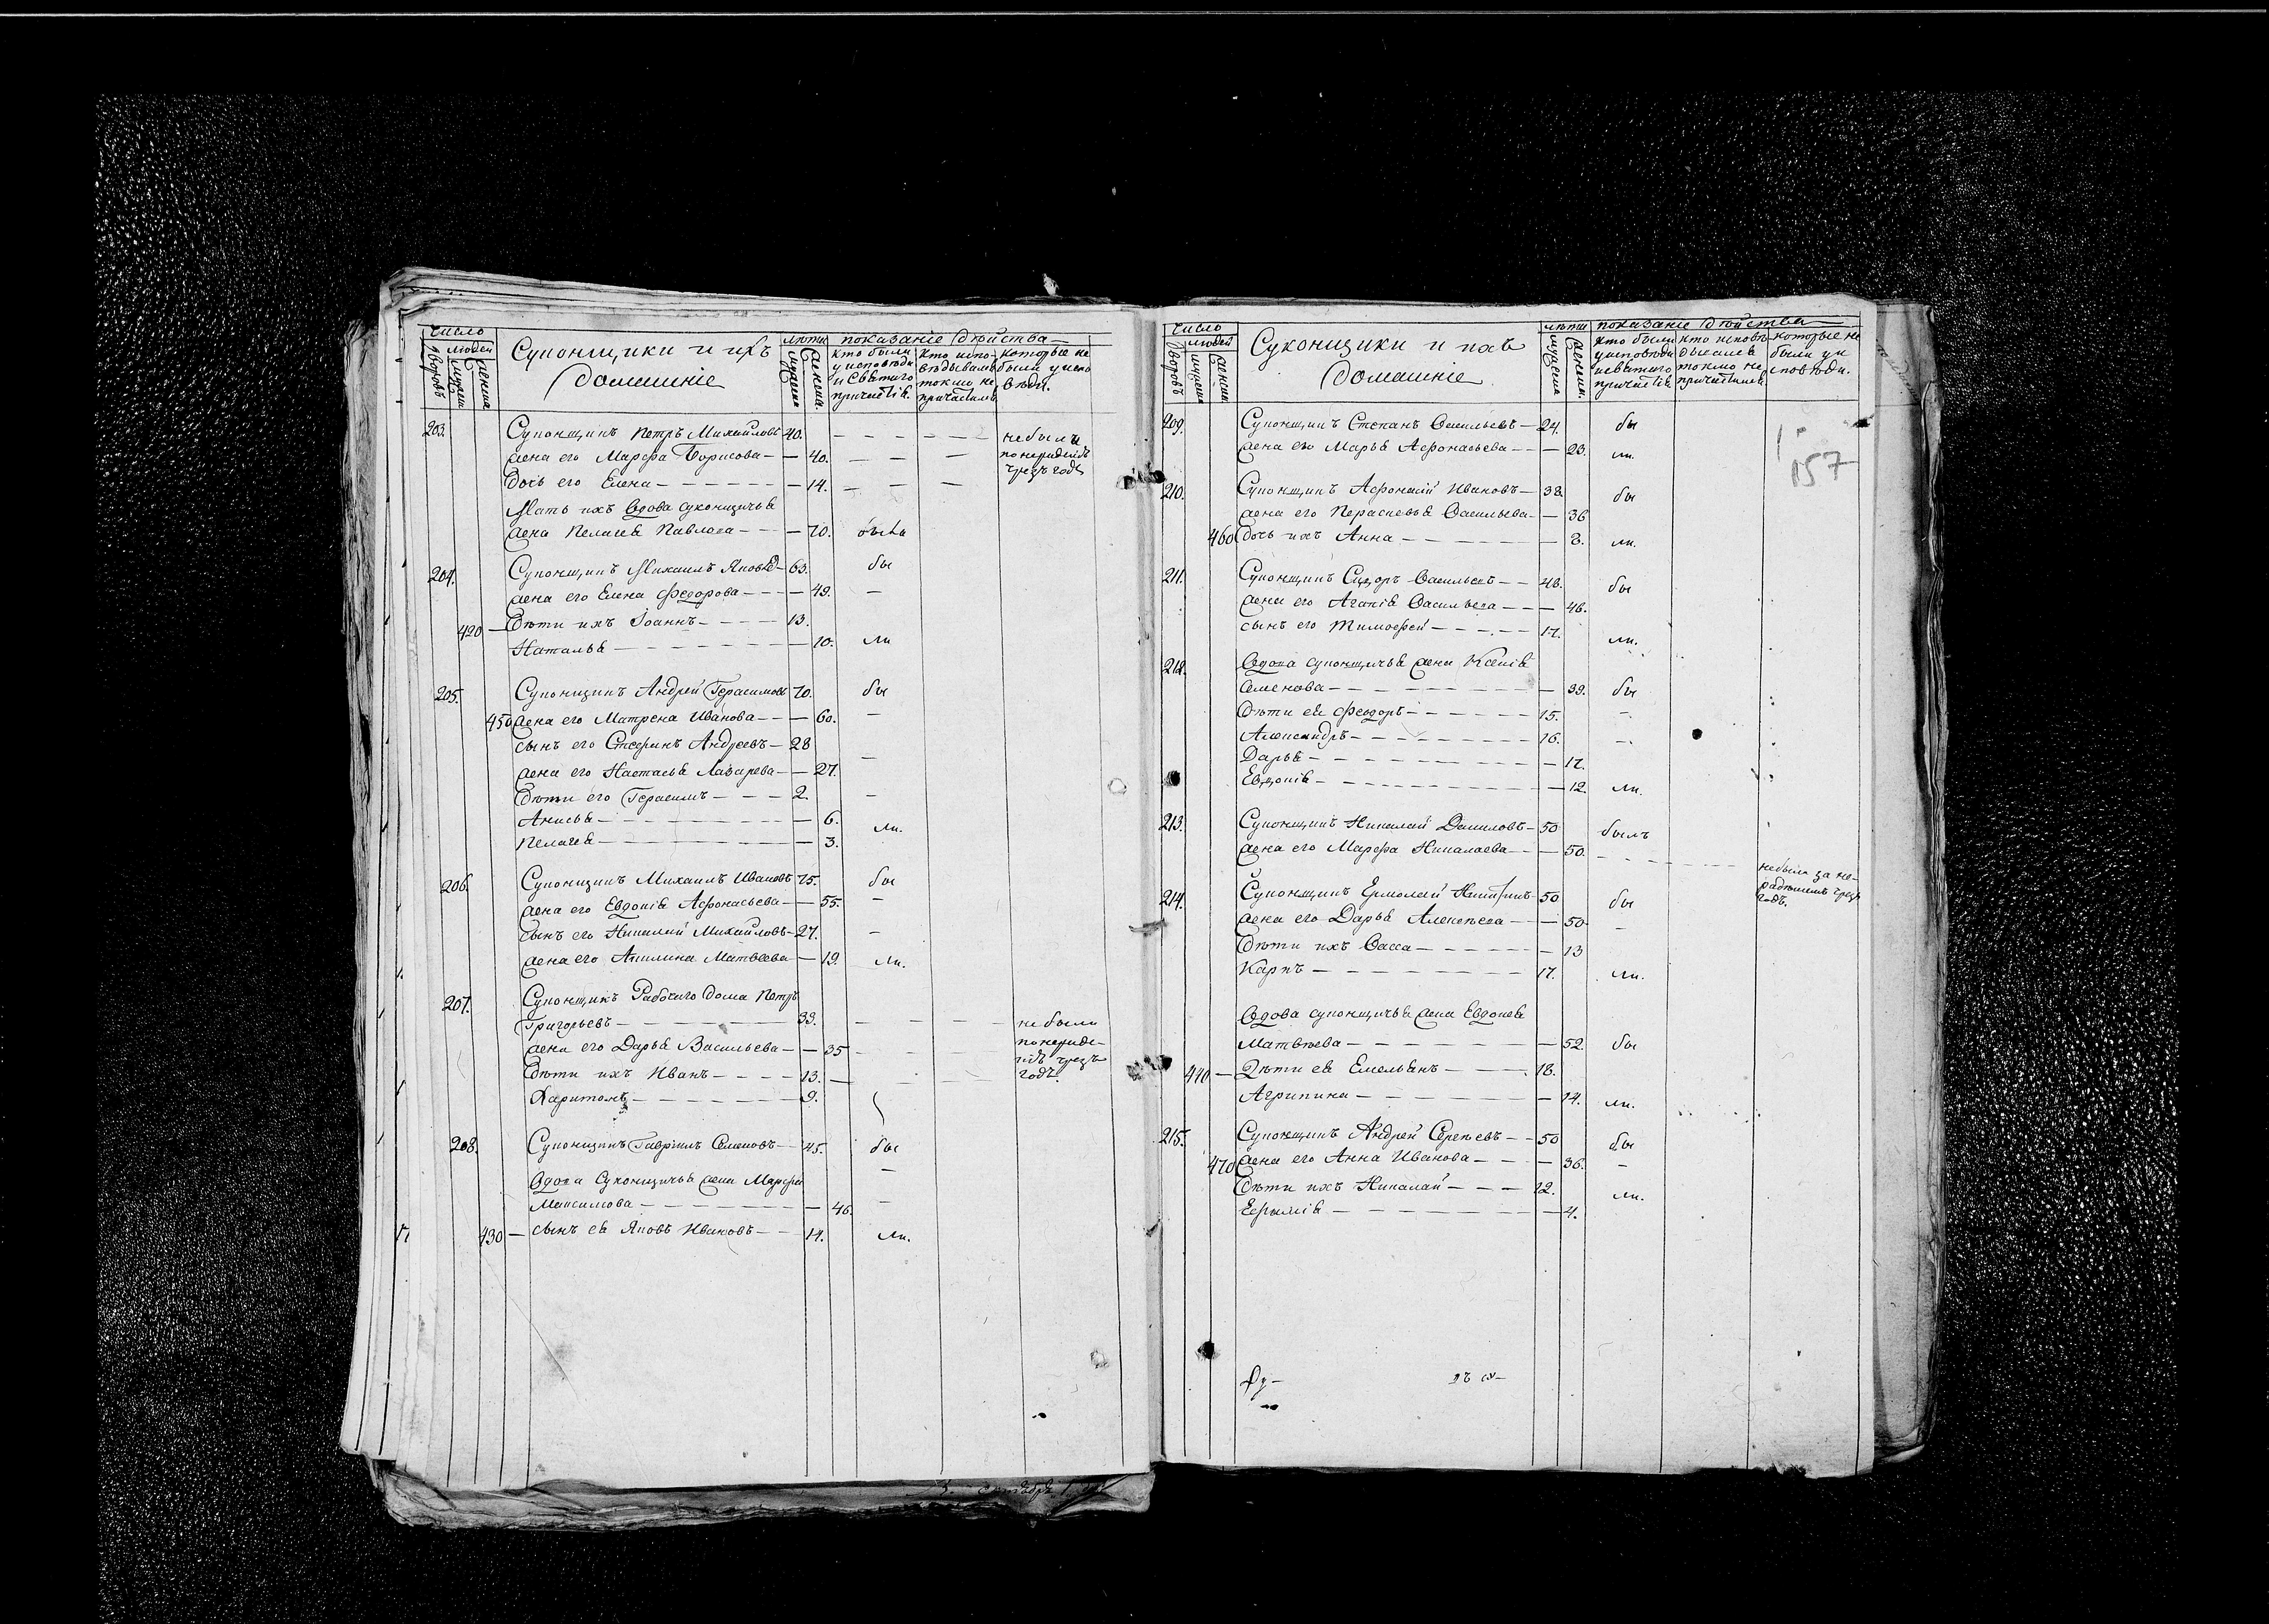 число
людей
дворовъ
мужеска
женска
Суконщики и ихъ
домашніе
лѣта
мужеска
женска
показаніе дѣйства
кто были
у исповѣди
и святаго
причастія.
кто испо-
вѣдывалсь
токмо не
причастились
которые не
были у испо
вѣди.
203. Суконщикъ Петръ Михайловъ 40. не были
жена его Марѳа Борисова — 40. по нерадѣнію
дочь его Елена — 14. чрезъ годъ
Мать ихъ вдова суконщичья
жена Пелагея Павлова — 70. была
204. Суконщикъ Михаилъ Яковлев 63. бы
жена его Елена Федорова — 49.
420 — дѣти ихъ Іоаннъ — 13.
Наталья — 10. ли
205. Суконщикъ Андрей Герасимовъ 70. бы
450 жена его Матрена Иванова — 60.
сынъ его Стефанъ Андреевъ — 28
жена его Настасья Лазарева — 27.
дѣти его Герасимъ — 2.
Анисья — 6. ли.
Пелагея — 3.
206. Суконщикъ Михаилъ Ивановъ 75. бы
жена его Евдокія Афонасьева — 55.
сынъ его Николай Михайловъ — 27.
жена его Акилина Матвѣева — 19. ли.
207. Суконщикъ Рабочаго дома Петръ
Григорьевъ — 33. не были
жена его Дарья Васильева — 35 по нераде-
дѣти ихъ Иванъ — 13. нію чрезъ
Харитонъ — 9. годъ.
208. Суконщикъ Гаврилъ Семеновъ — 45. бы
Вдова Суконщичья жена Марѳа
Максимова — 46.
430 — сынъ ея Яковъ Ивановъ — 14. ли.
число
людей
дворовъ
мужеска
женска
Суконщики и ихъ
домашніе
лѣта
мужеска
женска.
показаніе дѣйства
кто были
у исповѣди
и святаго
причастія
кто исповѣ
дывался
токмо не
причастился
которые не
были у и
сповѣди.
157
209. Суконщикъ Степанъ Васильевъ — 24. бы
жена его Марья Афонасьева — 23. ли.
210. Суконщикъ Афонасій Ивановъ — 38. бы
жена его Парасковья Васильева — 36
460 дочь ихъ Анна — 8. ли.
211. Суконщикъ Сидоръ Васильевъ — 48. бы
жена его Агапія Васильева — 46.
сынъ его Тимофей — 17. ли.
212. Вдова суконщичья жена Ксенія
Семенова — 39. бы
дѣти ея Феодоръ — 15.
Александръ — 16.
Дарья — 17.
Евдокія — 12. ли.
213. Суконщикъ Николай Даниловъ — 50 былъ
жена его Марѳа Николаева — 50. не была за не-
радѣніемъ чрезъ
годъ.
214. Суконщикъ Ермолай Никитинъ 50 бы
жена его Дарья Алексѣева — 50
дѣти ихъ Васса — 13
Карпъ — 17. ли.
Вдова суконщичья жена Евдокея
Матвѣева — 52. бы
440 — Дѣти ея Емельянъ — 18.
Агрипина — 14. ли.
215. Суконщикъ Андрей Сергѣевъ — 50 бы
470 жена его Анна Иванова — 36.
дѣти ихъ Николай — 12. ли.
Ефимія — 4.